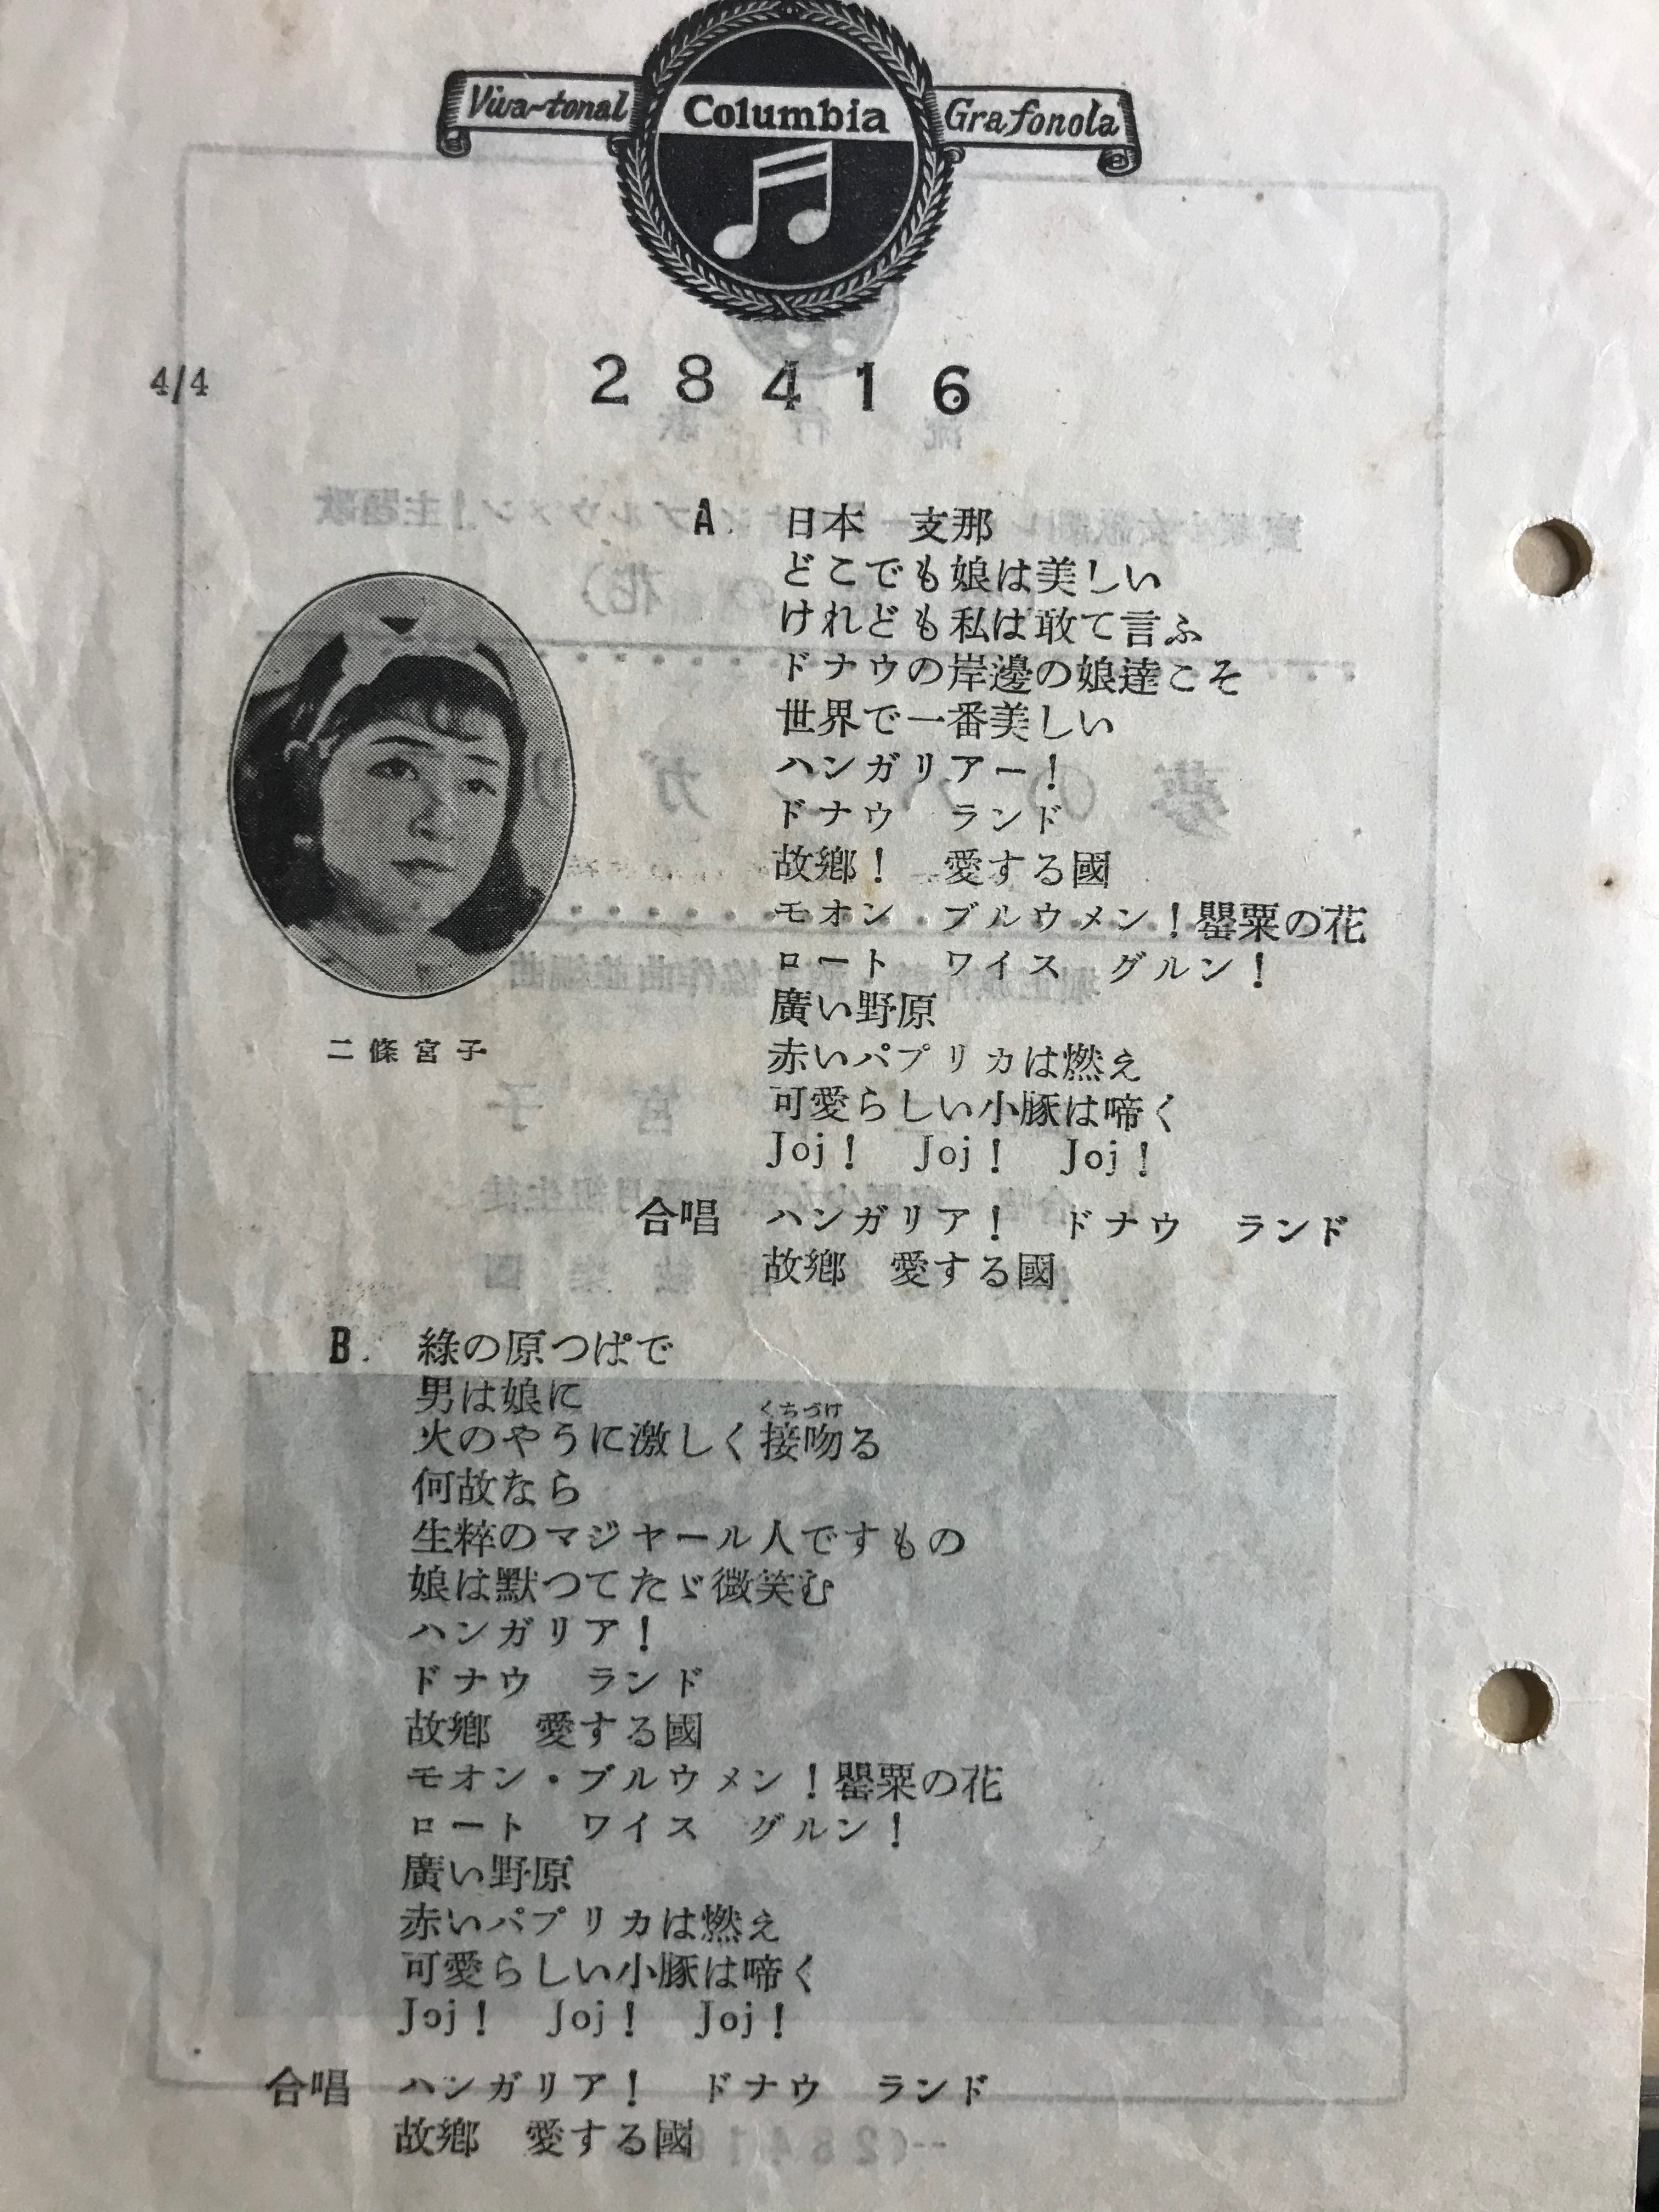 Viva-tonal Columbia Grafonola
28416
4/4
A. 日本 支那
どこでも娘は美しい
けれども私は敢て言ふ
ドナウの岸邊の娘達こそ
世界で一番美しい
ハンガリアー!
ドナウ ランド
故鄕! 愛する國
モオン・ブルウメン!罌粟の花
ロート ワイス グルン!
廣い野原
赤いパプリカは燃え
可愛らしい小豚は啼く
Joj! Joj! Joj!
合唱 ハンガリア! ドナウ ランド
故鄕 愛する國
二條宮子
B. 綠の原つぱで
男は娘に
火のやうに激しく接吻る
くちづけ
何故なら
生粹のマジヤール人ですもの
娘は默つてたゞ微笑む
ハンガリア!
ドナウ ランド
故鄕 愛する國
モオン・ブルウメン!罌粟の花
ロート ワイス グルン!
廣い野原
赤いパプリカは燃え
可愛らしい小豚は啼く
Joj! Joj! Joj!
合唱 ハンガリア! ドナウ ランド
故鄕 愛する國